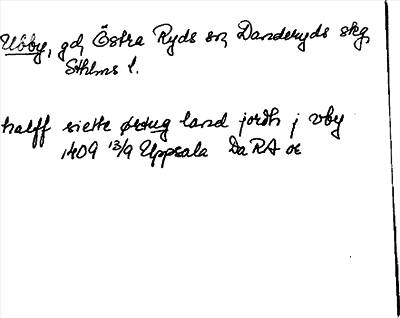 Ubby, gd, Östra Ryds sn, Danderyds skg,
Sthlms l.
halff siette ørtug land jordh j vby
1409 13/9 Uppsala DaRA oe